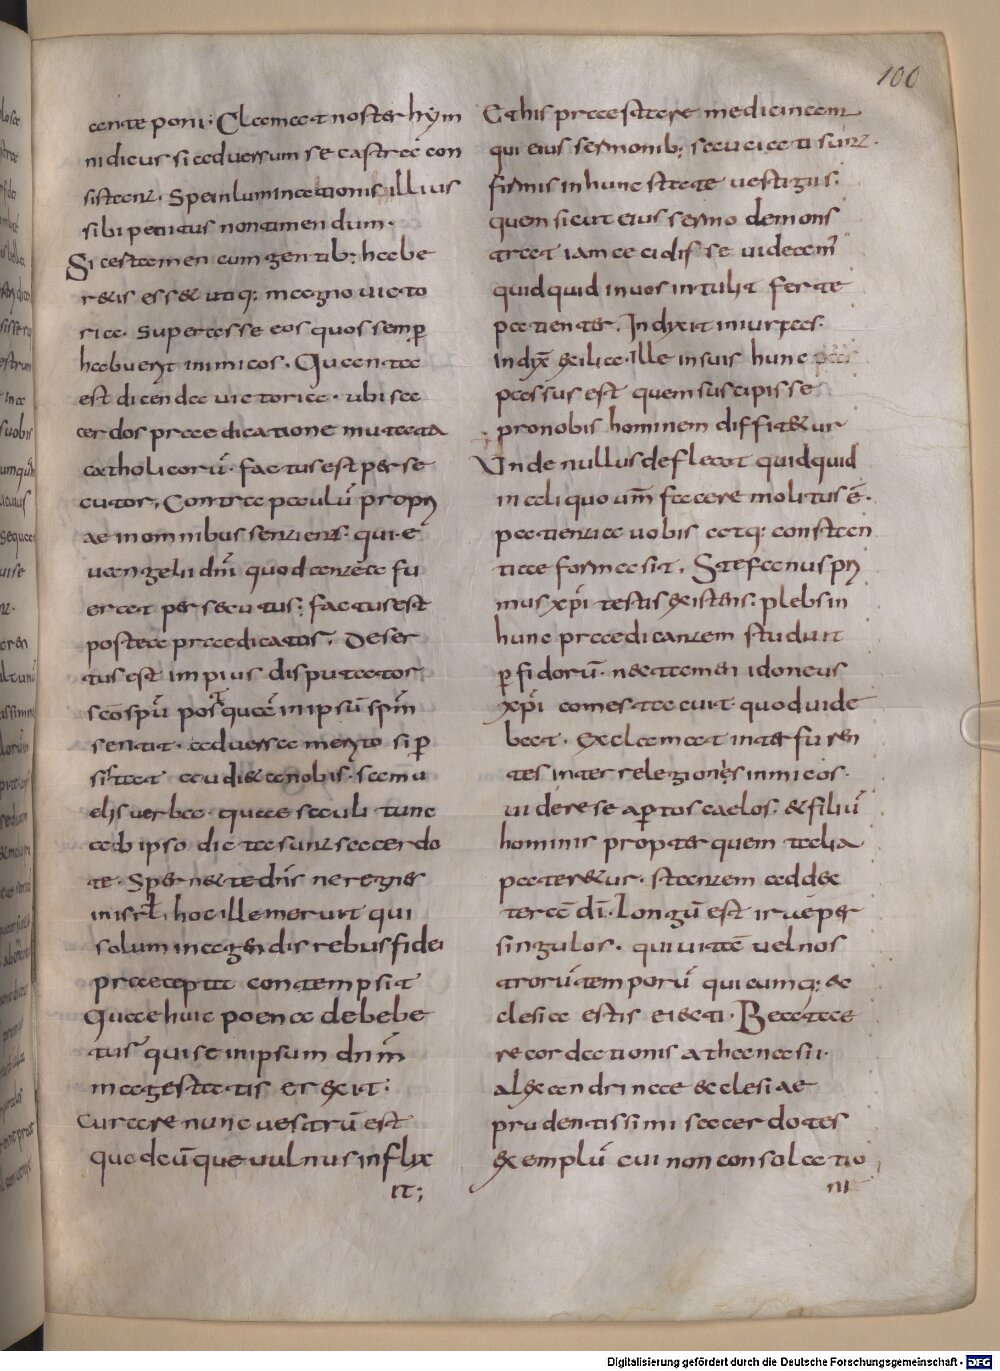 100
cente poni; Clamat noster hym
nidicus si adversum se castra con
sistant. Spem luminationis illius
sibi penitus non timendum.
Si est tamen cum gentib; habe
retis esset utiq; magno victo
ria. Superasse eos quos semp̄
habuerit inimicos. Quanta
est dicenda victoria. ubi sa
cerdos praedicatione mutata
catholicorū. factus est perse
cutor, Contra paulū proprii
ae in omnibus sentiens. qui e
uangelii dn̄i quod ante fu
erat persecutus; factus est
postea praedicator. Deser
tus est impius disputator
sc̄m sp̄m postquā in ipsū sp̄m
sentit. adversa merito si p̄
sistat audiet a nobis. samu
elis verba. quae sauli tunc
ab ipso dicta sunt sacerdo
te. Spernet te dn̄s ne regnes
in isrl̄, hoc ille meruit qui
solum in agendis rebus fidei
praecepta contempsit
Quae huic poena debebe
tur qui se in ipsum dn̄m
magestatis erexit:
Curare nunc vestrū est
quodcūque vulnus inflix
it;
Et his praestare medicinam
qui eius sermonib; sauciati sunt.
firmis in hunc state vestigiis.
quem sicut eius sermo demons
trat iam cecidisse videam
quidquid in vos intulit ferte
patienter. Induxit iniurias.
indux̄ exilia. Ille in suis hunc
passus est quem suscipisse
pro nobis hominem diffitetur
Unde nullus deflecat quidquid
in aliquo um̄ facere molitus ē.
patientia vobis atq; constan
tiae forma sit. Stefanus pri
mus xp̄i testis existens; plebs in
hunc praedicantem studuit
p̄fidorū. nec tamen idoneus
xp̄i comes tacuit quod vide
bat. Exclamat inter furen
tes inter relegiones inimicos.
videre se ap̄tos caelos. et filiū
hominis propter quem talia
pateretur. stantem ad dex
teram dī. Longū est ire per
singulos. qui vitae vel nos
trorū temporū quicumq; ec
clesiae estis electi. Beatae
recordationis athanasii.
alexandrinae ecclesiae
prudentissimi sacerdotes
exemplū cui non consolatio
ni
Digitalisierung gefördert durch die Deutsche Forschungsgemeinschaft - DFG